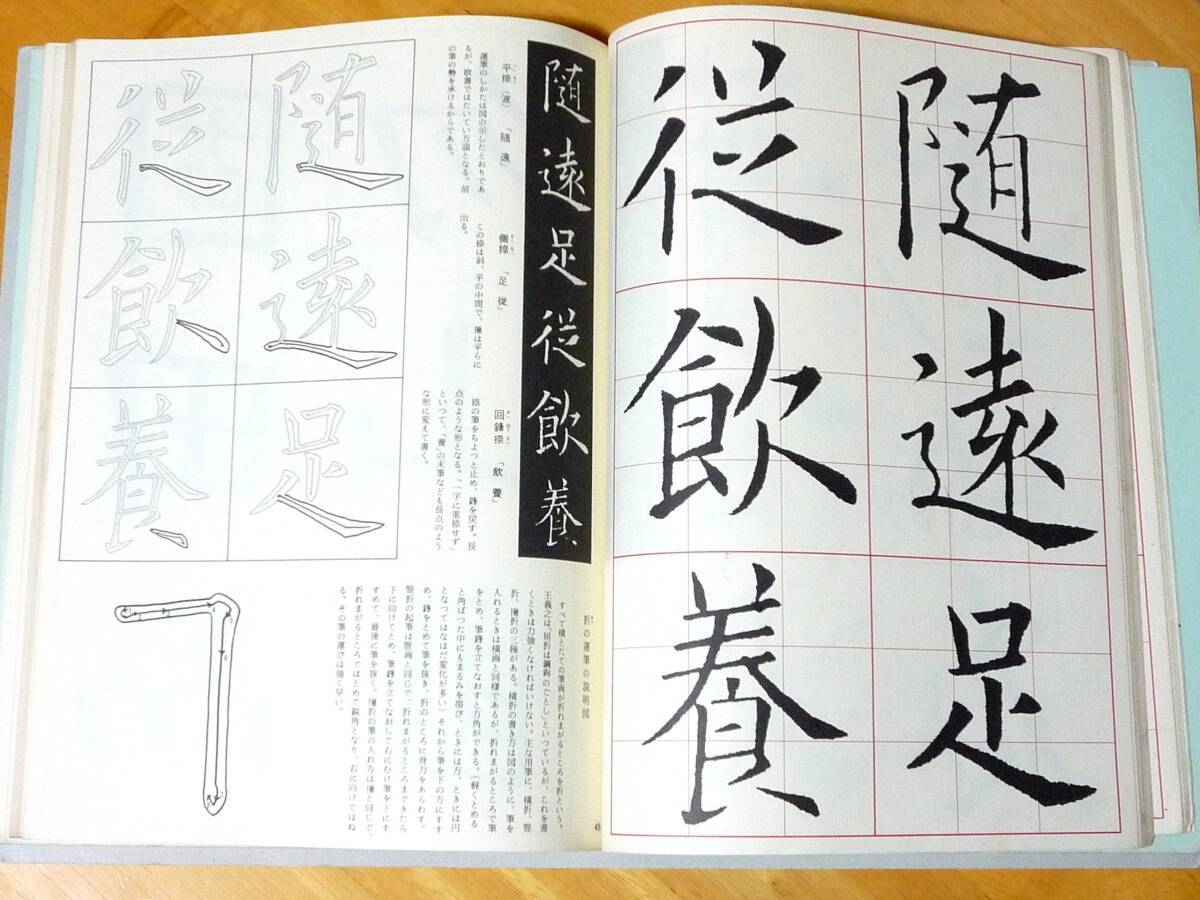 随遠足
従飲養
随遠足従飲養
平捺(波)「随 遠」
運筆のしかたは図の示したとおりであ
るが、欧書ではたいてい方頭となる。前
の筆の勢を承けるからである。
側捺 「足 従」
この捺は斜、平の中間で、は平らに
出る。
回鋒捺 「飲 養」
捺の筆をちよつと止め、鋒を戻す。長
点のような形となる。「一字に重捺せず」
といつて、「養」の末筆なども長点のよう
な形に変えて書く。
随遠足
従飲養
折の運筆の説明図
すべて横とたての筆画が折れまがるところを折という。
王羲之は「屈折は鋼鉤のごとし」といつているが、これを書
くときは力強くなければいけない。主な用筆に、横折、豎
折、撇折の三種がある。横折の書き方は図のように、筆を
入れるときは横画と同様であるが、折れまがるところで筆
をとめ、筆鋒を立てなおすと方角ができる。(軽くとめる
と角ばつた中にもまるみを帯び、ときには方、ときには円
となつてはなはだ変化が多い)それから筆を下の方にすす
め、鋒をとめて筆を抜き、折のところに骨力をあらわす。
豎折の起筆は豎画と同じで、折れまがるところまできたら
下に向けてとめ、筆鋒を立てなおして右にむけ筆を下にす
すめて、最後に筆を抜く。撇折の筆の入れ方は撇と同じで、
折れまがるところではとめて鋭角となり、右に向けてはね
る。その筆の運びは強く早い。
45